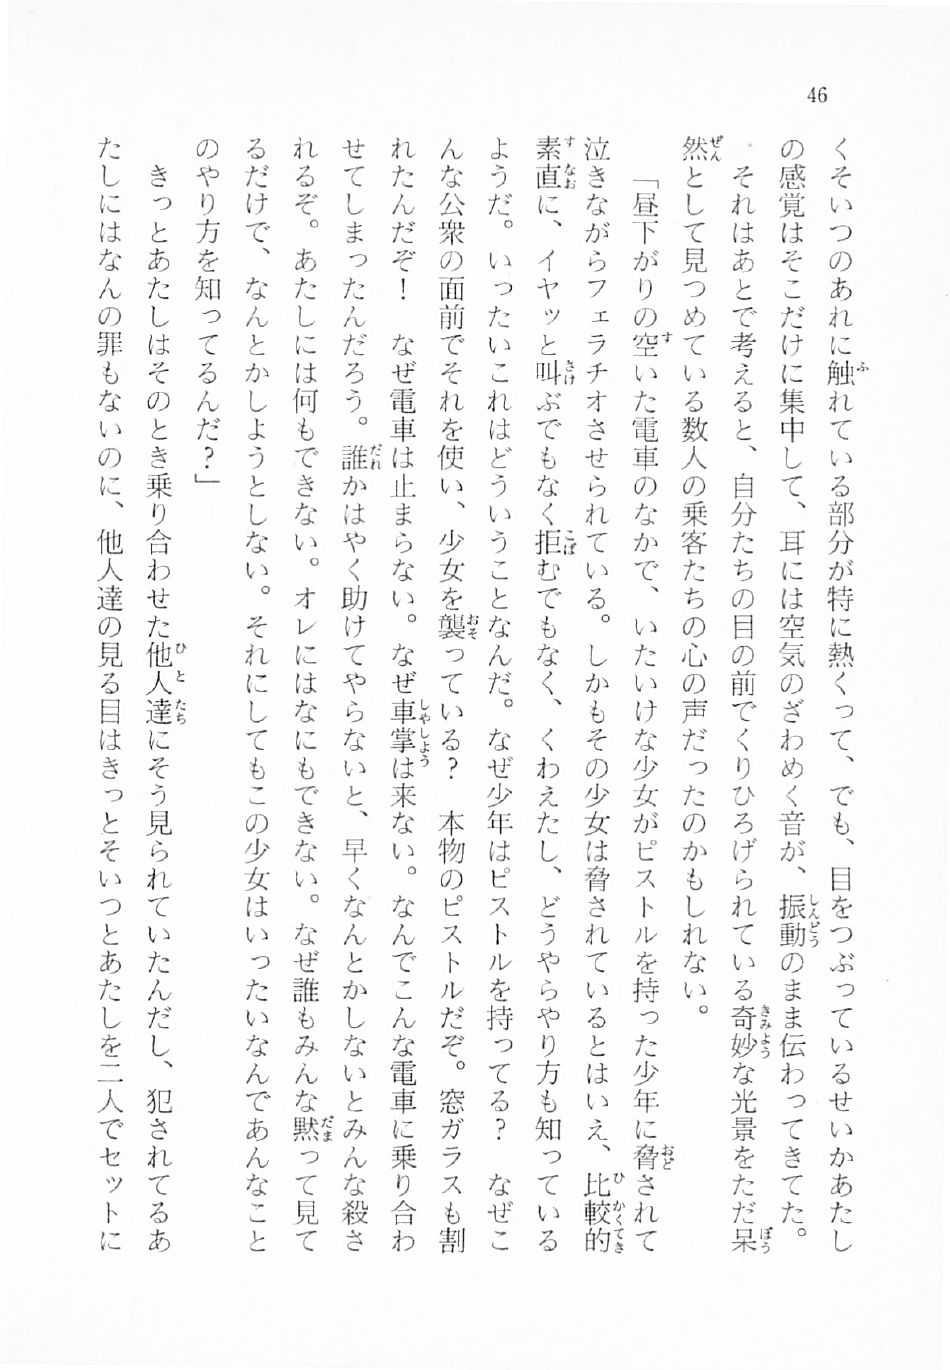 46
くそいつのあれに触れている部分が特に熱くって、でも、目をつぶっているせいかあたし
の感覚はそこだけに集中して、耳には空気のざわめく音が、振動のまま伝わってきてた。
それはあとで考えると、自分たちの目の前でくりひろげられている奇妙な光景をただ呆
然として見つめている数人の乗客たちの心の声だったのかもしれない。
「昼下がりの空いた電車のなかで、いたいけな少女がピストルを持った少年に脅されて
泣きながらフェラチオさせられている。しかもその少女は脅されているとはいえ、比較的
素直に、イヤッと叫ぶでもなく拒むでもなく、くわえたし、どうやらやり方も知っている
ようだ。いったいこれはどういうことなんだ。なぜ少年はピストルを持ってる？　なぜこ
んな公衆の面前でそれを使い、少女を襲っている？　本物のピストルだぞ。窓ガラスも割
れたんだぞ！　なぜ電車は止まらない。なぜ車掌は来ない。なんでこんな電車に乗り合わ
せてしまったんだろう。誰かはやく助けてやらないと、早くなんとかしないとみんな殺さ
れるぞ。あたしには何もできない。オレにはなにもできない。なぜ誰もみんな黙って見て
るだけで、なんとかしようとしない。それにしてもこの少女はいったいなんであんなこと
のやり方を知ってるんだ？」
きっとあたしはそのとき乗り合わせた他人達にそう見られていたんだし、犯されてるあ
たしにはなんの罪もないのに、他人達の見る目はきっとそいつとあたしを二人でセットに